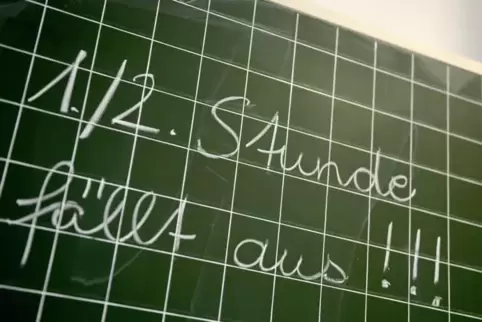 1./2. Stunde
fällt aus!!!